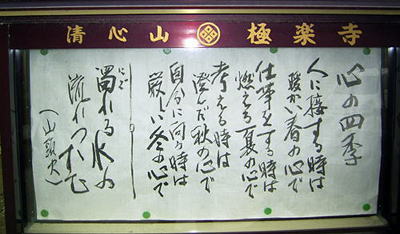 清心山 極楽寺
心の四季
人に接する時は
暖かい春の心で
仕事をする時は
燃える夏の心で
考える時は
澄んだ秋の心で
自分に向う時は
厳しい冬の心で
濁れる水の
にご
流れつつ澄む
(山頭火)